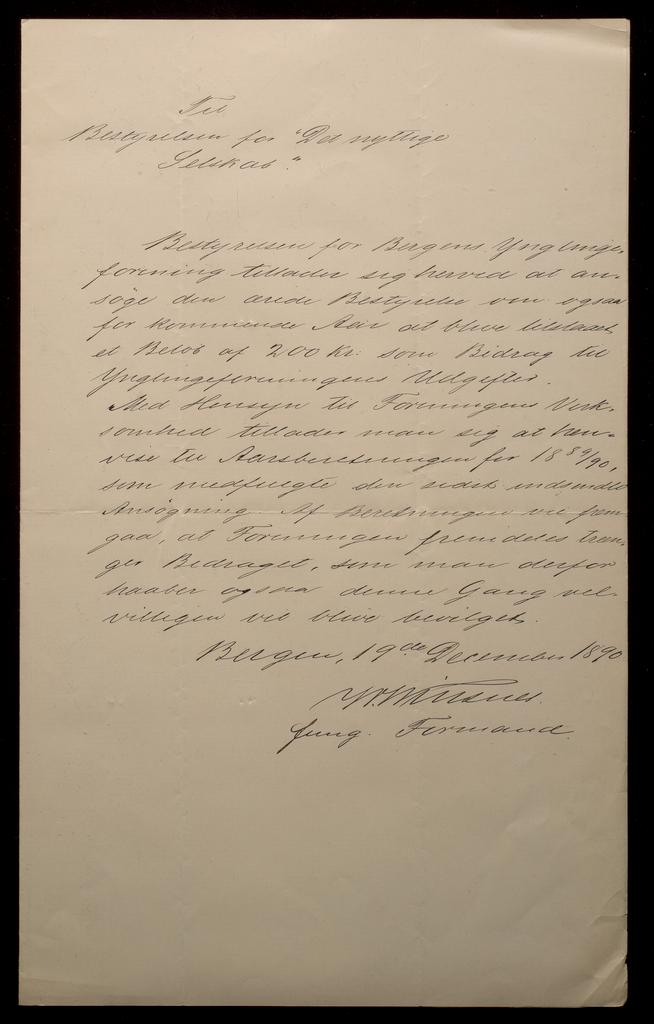 Til
Bestyrelsen for "Det nyttige
Selskab".
Bestyrelsen for Bergens Ynglinge-
forening tillader sig herved at an-
söge den ærede Bestyrelse om ogsaa
for kommende Aar at blive tilstaaet
et Belöb af 200 Kr. som Bidrag til
Ynglingeforeningens Udgifter.
Med Hensyn til Foreningens Virk-
somhed tillader man sig at hen-
vise til Aarsberetningen for 1889/90,
som medfulgte den sidst indsendte
Ansögning. Af Beretningen vil frem-
gaa, at Foreningen fremdeles træn-
ger Bidraget, som man derfor
haaber ogsaa denne Gang vel-
villigen vil blive bevilget.
Bergen, 19de December 1890
fung. Formand.